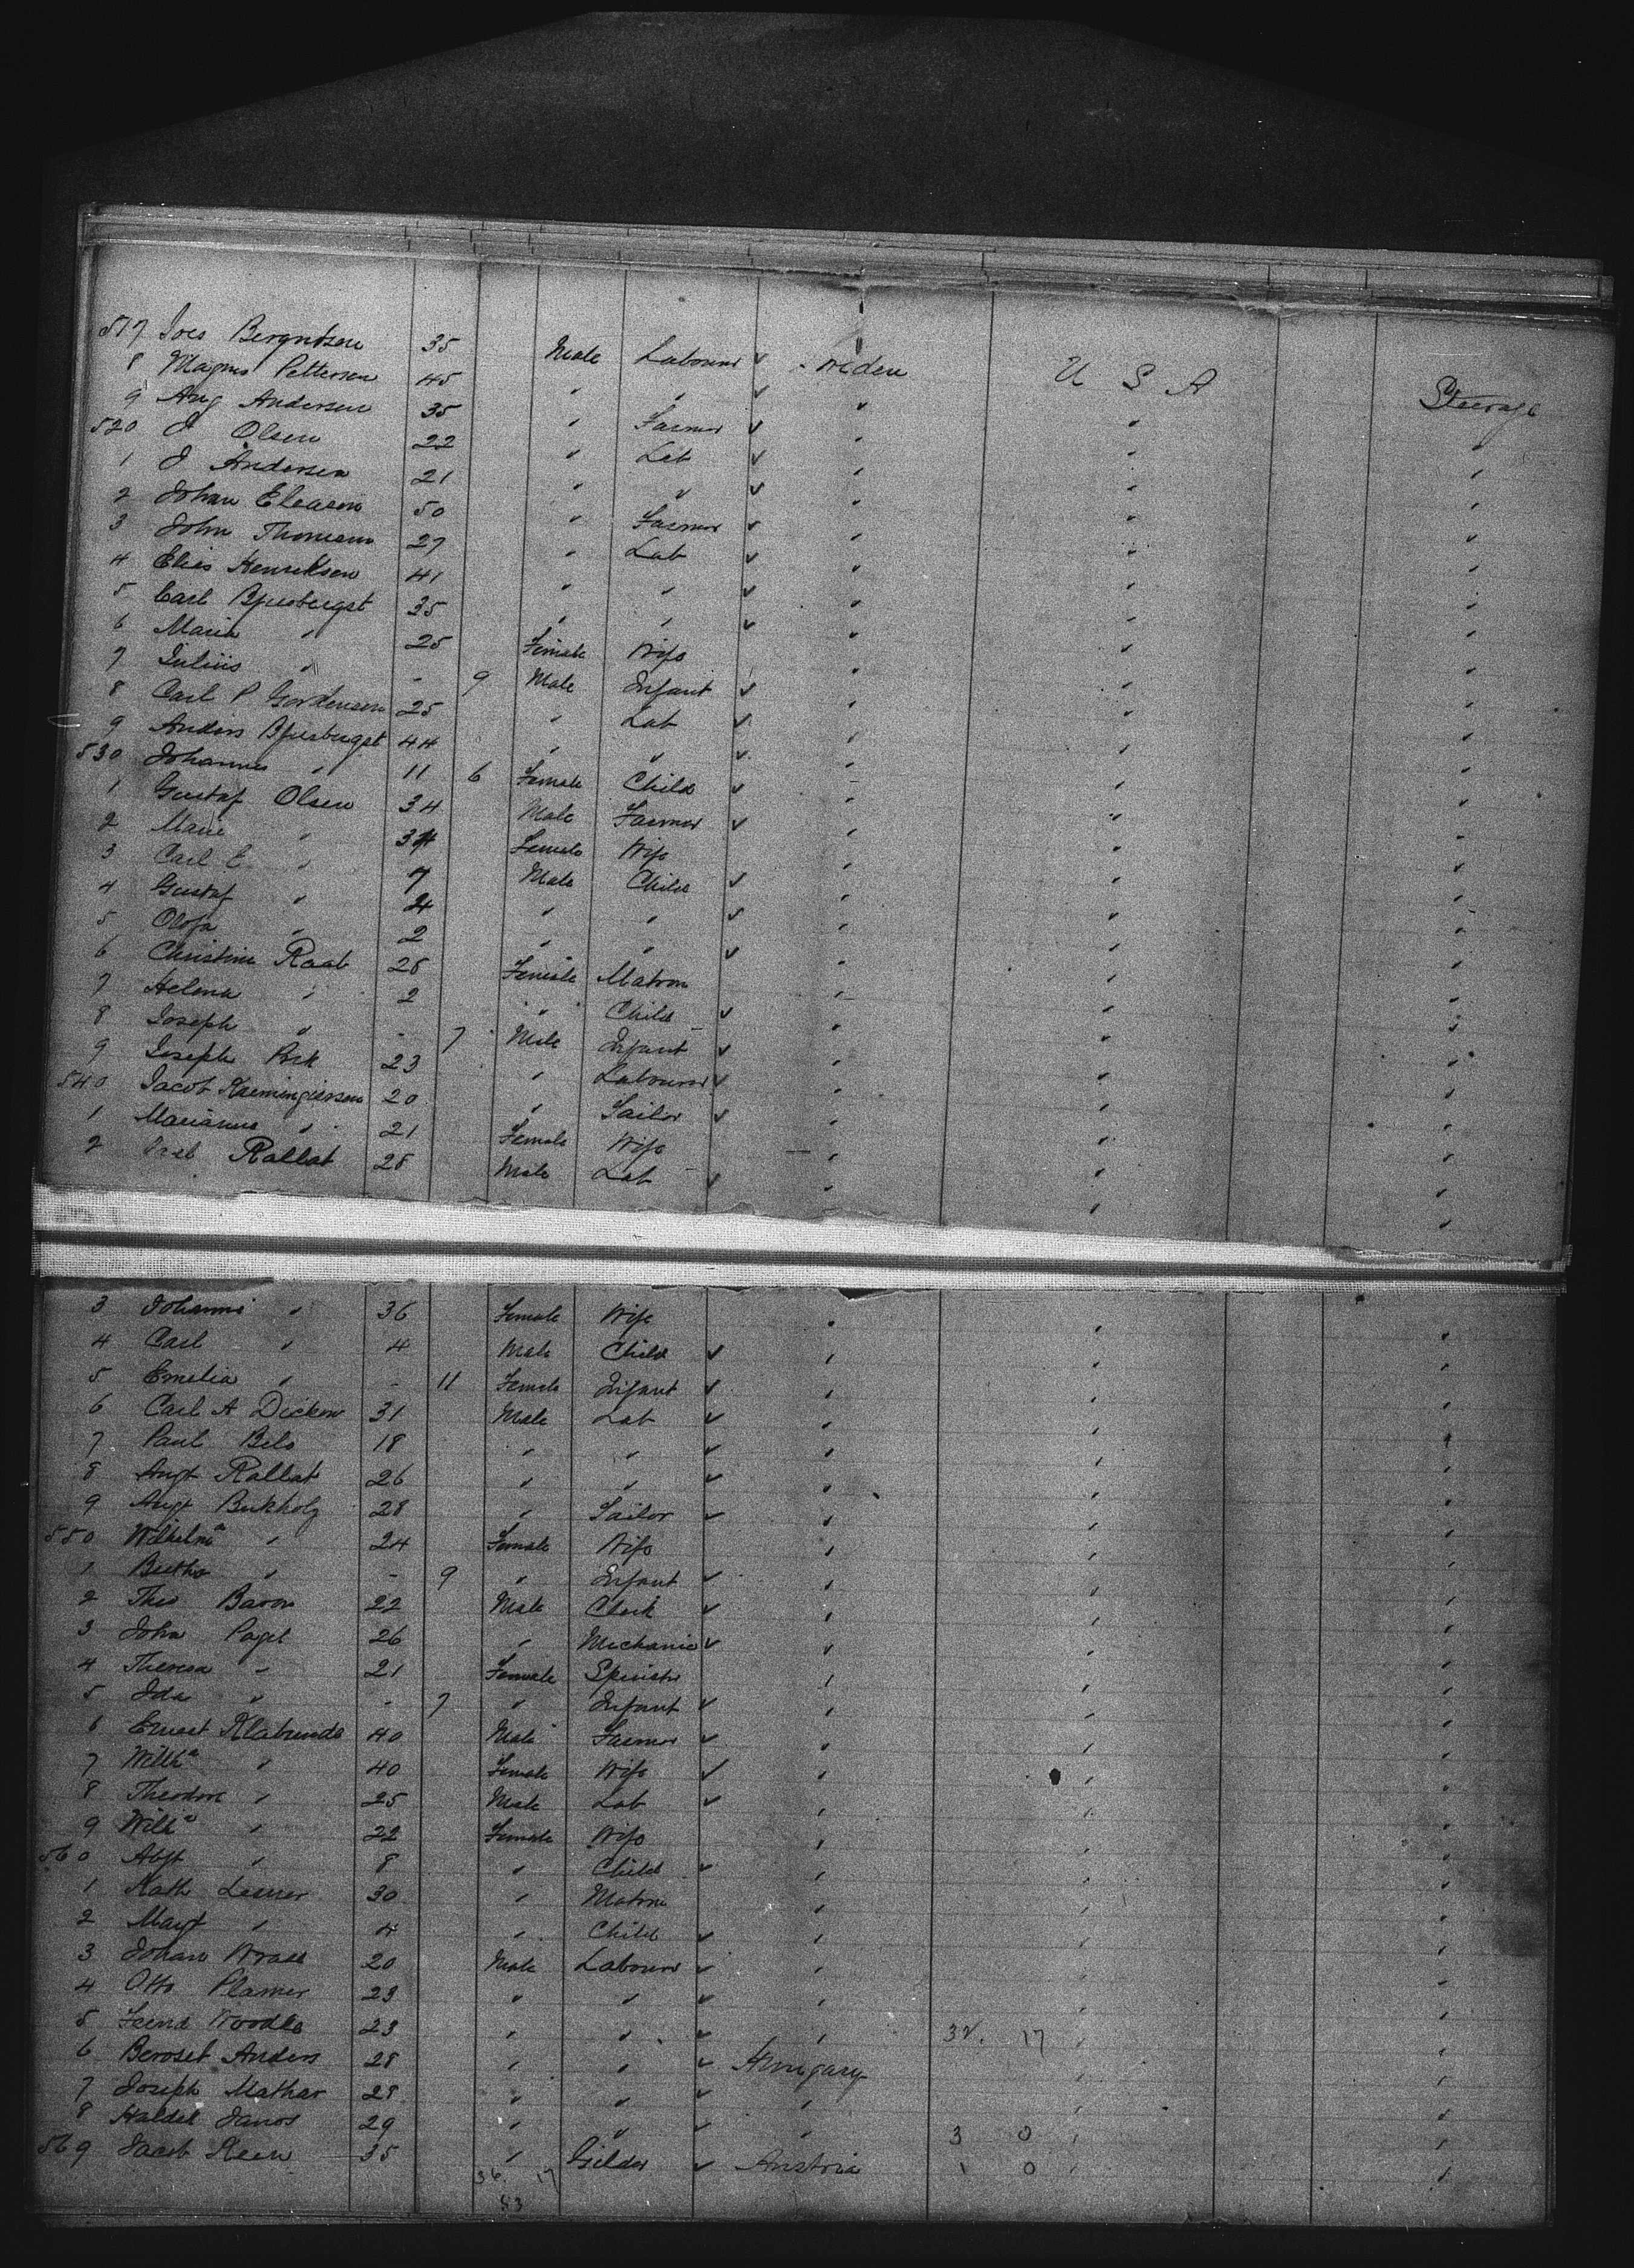 517 Joes Bergndsen 35 Male Labourer ✓ weden U S A Steerage
8 Magnus Pettersen 45 " " ✓ " " "
9 Aug Andersen 35 " Farmer ✓ " " "
520 J Olsen 22 " Lab ✓ " " "
1 J Andersen 21 " " ✓ " " "
2 Johan Eleason 50 " Farmer ✓ " " "
3 John Thomsen 27 " Lab ✓ " " "
4 Elias Henriksen 41 " " ✓ " " "
5 Carl 35 " " ✓ " " "
6 Maria " 25 Female Wife " " "
7 Julius " - 9 Male Infant ✓ " " "
8 Carl P Gordensen 25 " Lab ✓ " " "
9 Anders 44 " " ✓ " " "
530 Johannes " 11 6 Female Child ✓ " " "
1 Gustaf Olsen 34 Male Farmer ✓ " " "
2 Marie " 34 Female Wife " " "
3 Carl E " 7 Male Child ✓ " " "
4 Gustaf " 4 " " ✓ " " "
5 Olofa " 2 " " ✓ " " "
6 Christine Raab 28 Female Matron " " "
7 Helena " 2 " Child ✓ " " "
8 Joseph " - 7 Male Infant ✓ " " "
9 Joseph 23 " Labourer ✓ " " "
540 Jacob 20 " Sailor ✓ " " "
1 Marianne " 21 Female Wife " " "
2 Rallat 28 Male Lab ✓ " " "
3 Johanna " 36 Female Wife " " "
4 Carl " 4 Male Child ✓ " " "
5 Emelia " - 11 Female Infant ✓ " " "
6 Carl A Dickow 31 Male Lab ✓ " " "
7 Paul Belo 18 " " ✓ " " "
8 Augt Rallat 26 " " ✓ " " "
9 Augt Bukholz 28 " Sailor ✓ " " "
550 Wilhelmᵃ " 24 Female Wife " " "
1 Bertha " - 9 " Infant ✓ " " "
2 Theo Baron 22 Male Clerk ✓ " " "
3 John Pagel 26 " Mechanic ✓ " " "
4 Theresa " 21 Female Spinstr " " "
5 Ida " - 7 " Infant ✓ " " "
6 Ernest Klabunde 40 Male Farmer ✓ " " "
7 Willhᵃ " 40 Female Wife ✓ " " "
8 Theodore " 25 Male Lab ✓ " " "
9 Willᵃ " 22 Female Wife " " "
560 " 8 " Child ✓ " " "
1 Kath Lesner 30 " Matron " " "
2 Magt " 4 " Child ✓ " " "
3 Johan Wrase 20 Male Labourer ✓ " " "
4 Otto Plamer 23 " " ✓ " " "
5 Woodke 23 " " ✓ " 32. 17 " "
6 Beroset Anders 28 " " ✓ Hungary " "
7 Joseph Mathar 28 " " ✓ " " "
8 Haldel Janos 29 " " ✓ " 3 0 " "
569 Jacob Keen 35 " Gilder ✓ Austria 1 0 " "
36. 17
53